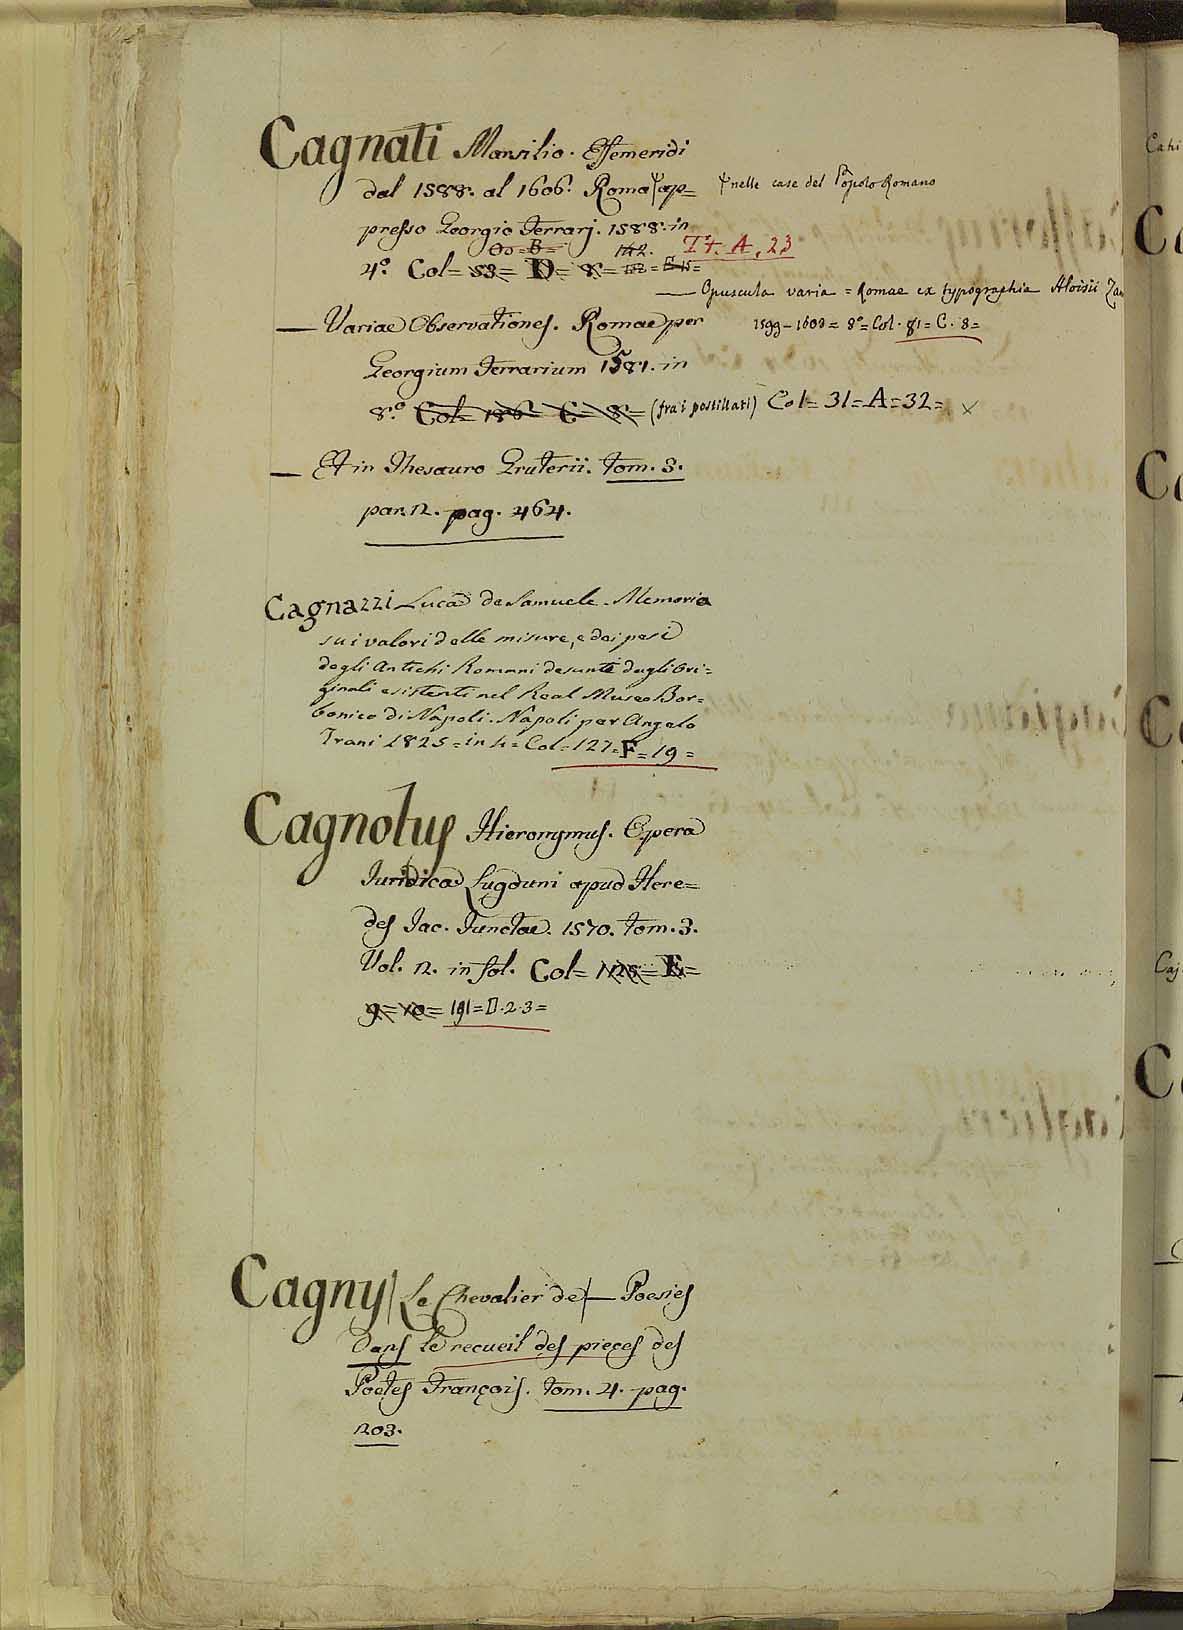 Cagnati Marsilio. Effemeridi
dal 1588. al 1606. Roma Ψ ap=
Ψ nelle case del Popolo Romano
presso Georgio Ferrarj. 1588. in
B= 142. T4. A, 23
4.° Col= 53= D= 8=
— Opuscula varia = Romae ex typographia Aloisii Zan
1599-1603 = 8°= Col. 81= C. 8=
— Variae Observationes. Romae per
Georgium Ferrarium 1581. in
8.° Col= 186= C= 8= (fra i postillati) Col= 31= A= 32= x
— Et in Thesauro Gruterii. tom. 3.
par. 2. pag. 464.
Cagnazzi Luca de Samuele. Memoria
sui valori delle misure, e dei pesi
degli Antichi Romani desunti dagli Ori=
ginali esistenti nel Real Museo Bor=
bonico di Napoli. Napoli per Angelo
Trani 1825= in 4= Col= 127= F= 19=
Cagnolus Hieronymus. Opera
Juridica Lugduni apud Here=
des Jac. Junctae. 1570. tom. 3.
Vol. 2. in fol. Col= 125= E=
9= 10= 191= D. 2. 3=
Cagny (Le Chevalier de) — Poesies
Dans le recueil des pieces des
Poetes François. tom. 4. pag.
203.
Cahi
Ca
Ca
Ca
Caj
Ca